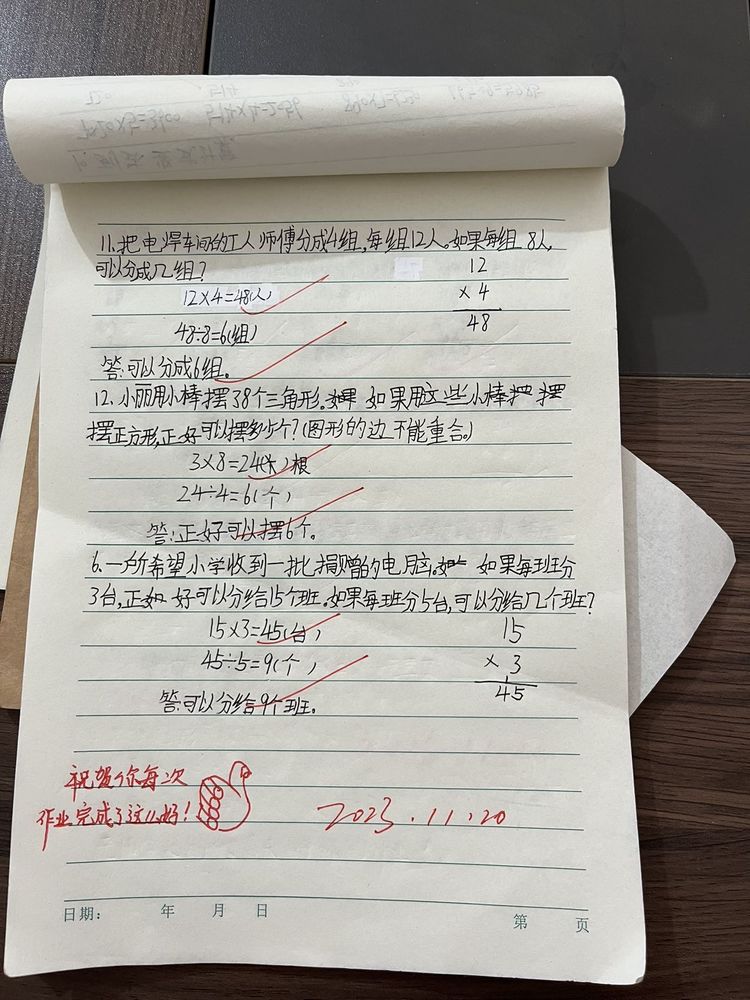 11.把电焊车间的工人师傅分成4组,每组12人。如果每组 8人,
可以分成几组?
12×4=48(人)
48÷8=6(组)
12
× 4
48
答:可以分成6组。
12.小丽用小棒摆38个三角形。如果用这些小棒 摆
摆正方形,正好可以摆多少个?(图形的边不能重合。)
3×8=24(米)根
24÷4=6(个)
答:正好可以摆6个。
6.一所希望小学收到一批捐赠的电脑。如果每班分
3台,正好可以分给15个班。如果每班分5台,可以分给几个班?
15×3=45(台)
45÷5=9(个)
15
× 3
45
答:可以分给9个班。
祝贺你每次
作业完成了这么好!
2023.11.20
日期: 年 月 日
第 页